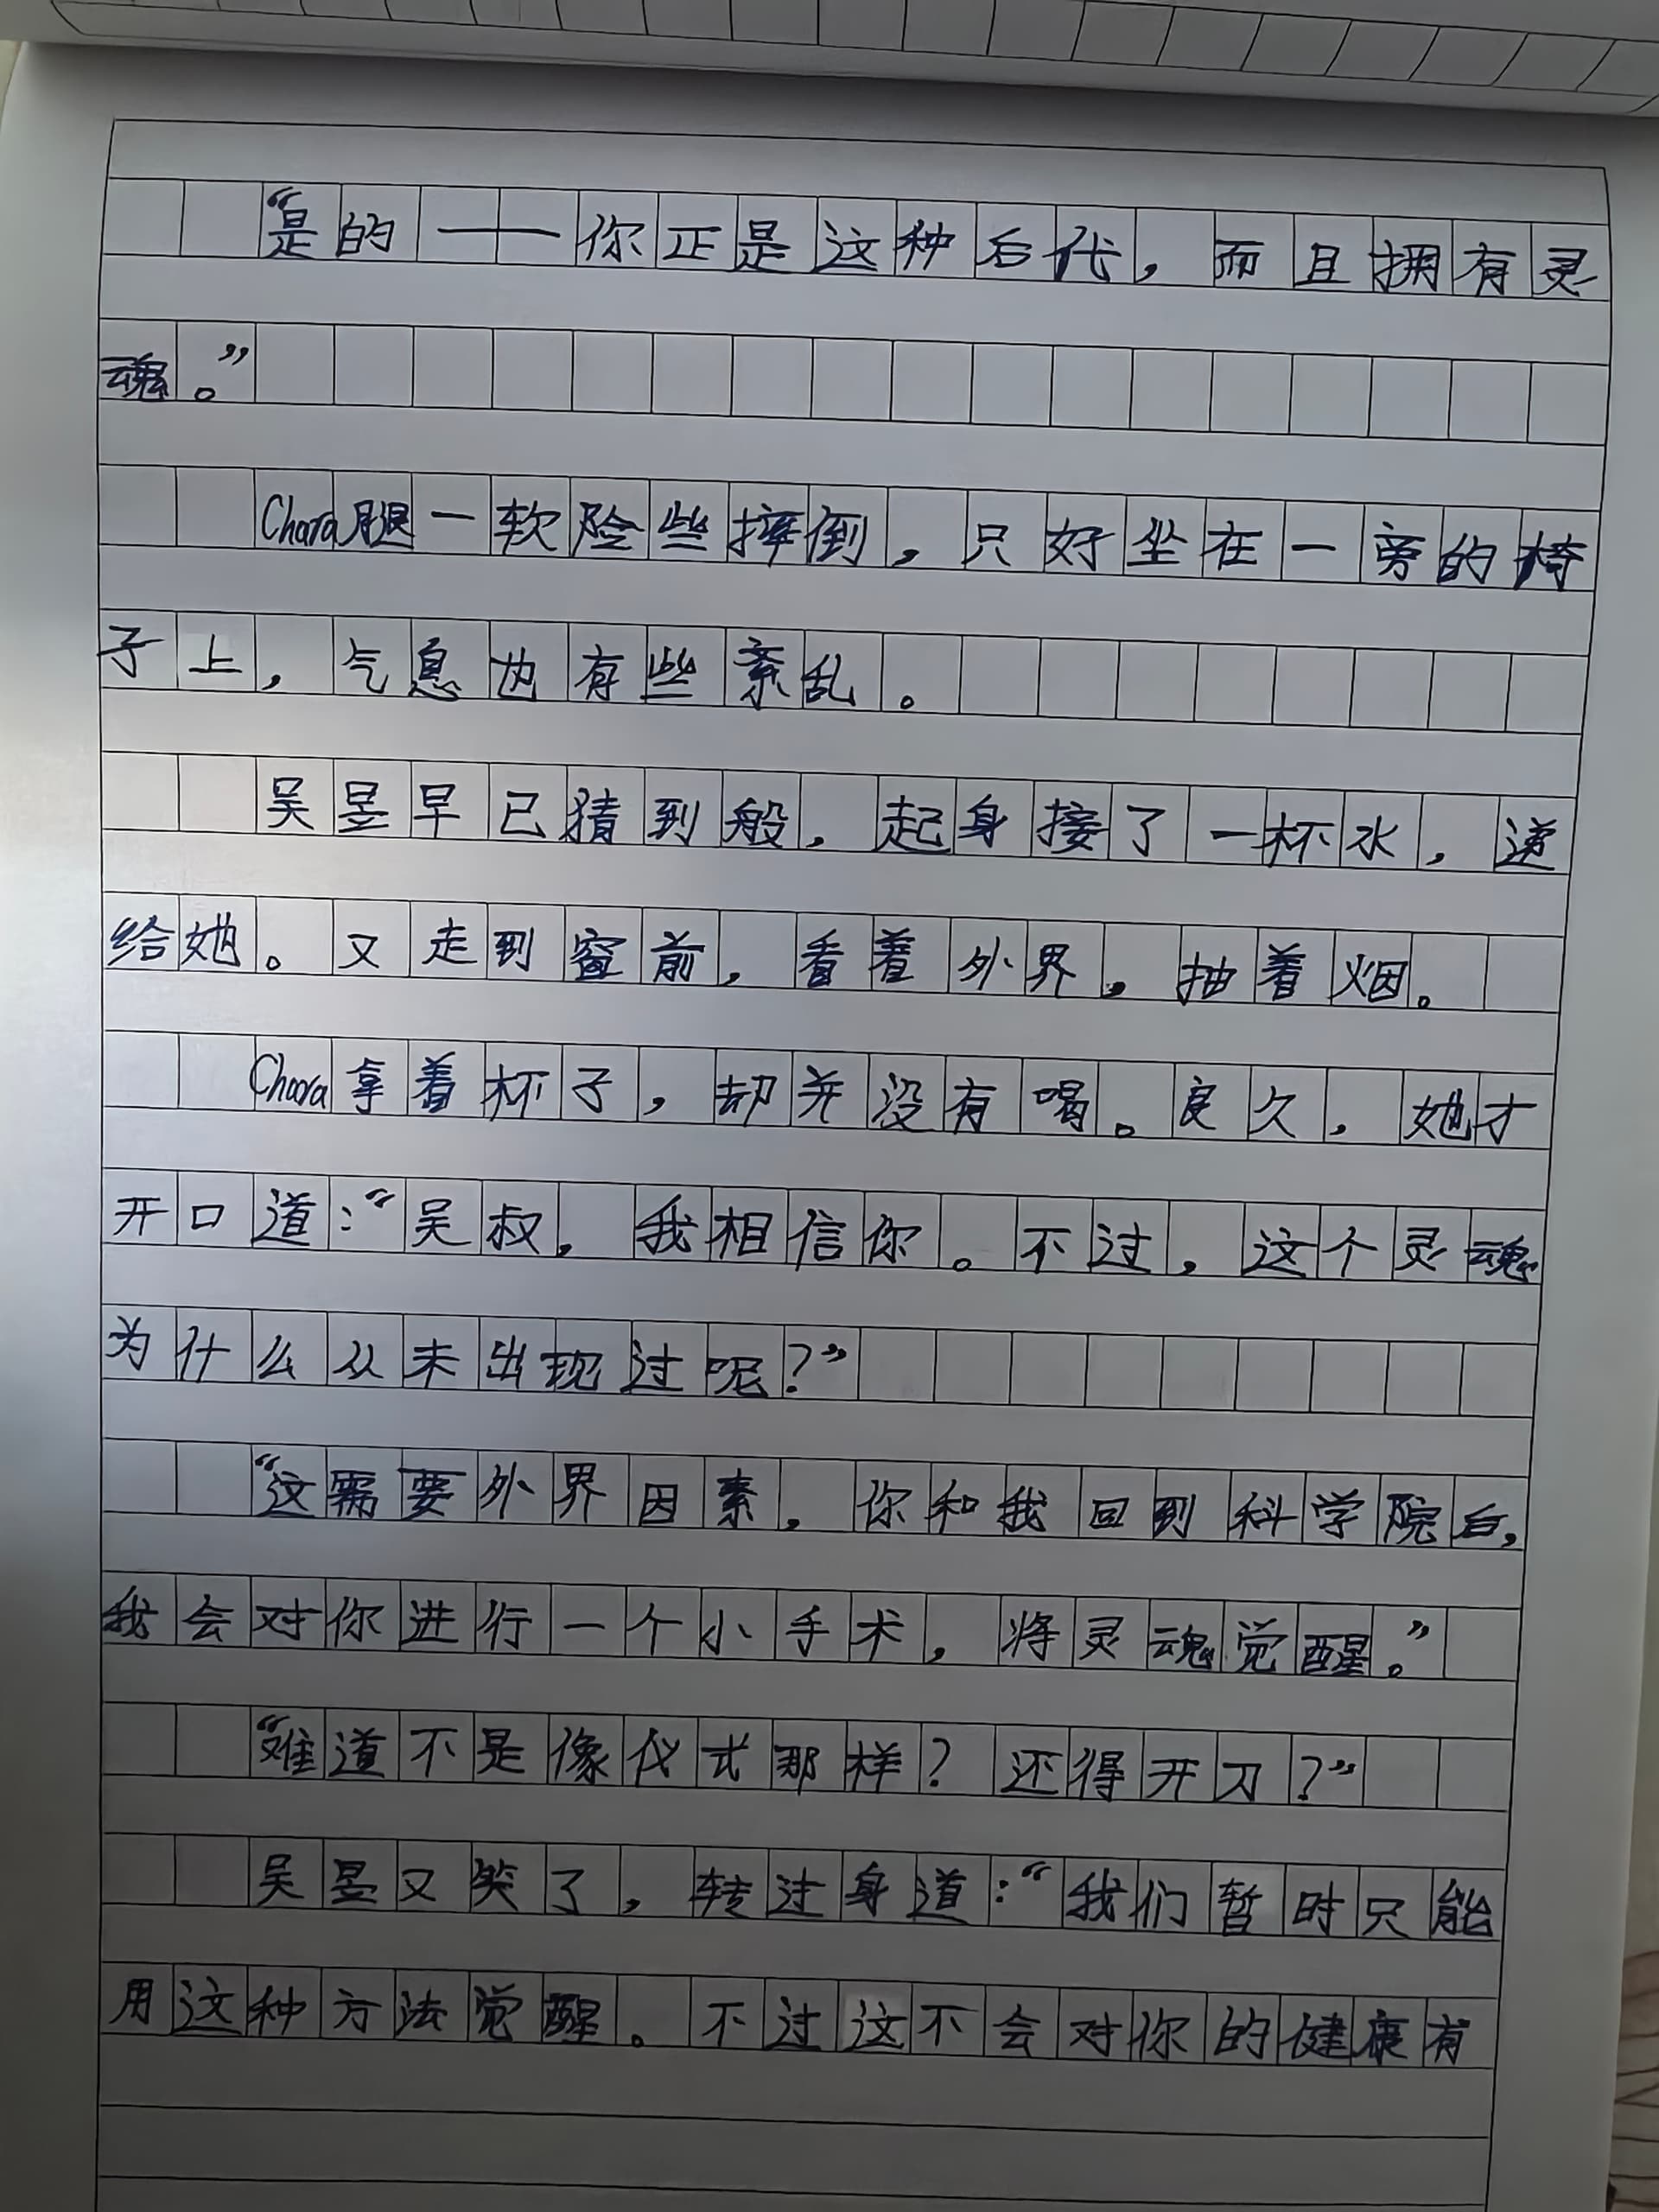 “是的——你正是这种后代，而且拥有灵
魂。”
Chara腿一软险些摔倒，只好坐在一旁的椅
子上，气息也有些紊乱。
吴昱早已猜到般，起身接了一杯水，递
给她。又走到窗前，看着外界，抽着烟。
Chara拿着杯子，却并没有喝。良久，她才
开口道：“吴叔，我相信你。不过，这个灵魂
为什么从未出现过呢？”
“这需要外界因素，你和我回到科学院后，
我会对你进行一个小手术，将灵魂觉醒。”
“难道不是像仪式那样？还得开刀？”
吴昱又笑了，转过身道：“我们暂时只能
用这种方法觉醒。不过这不会对你的健康有